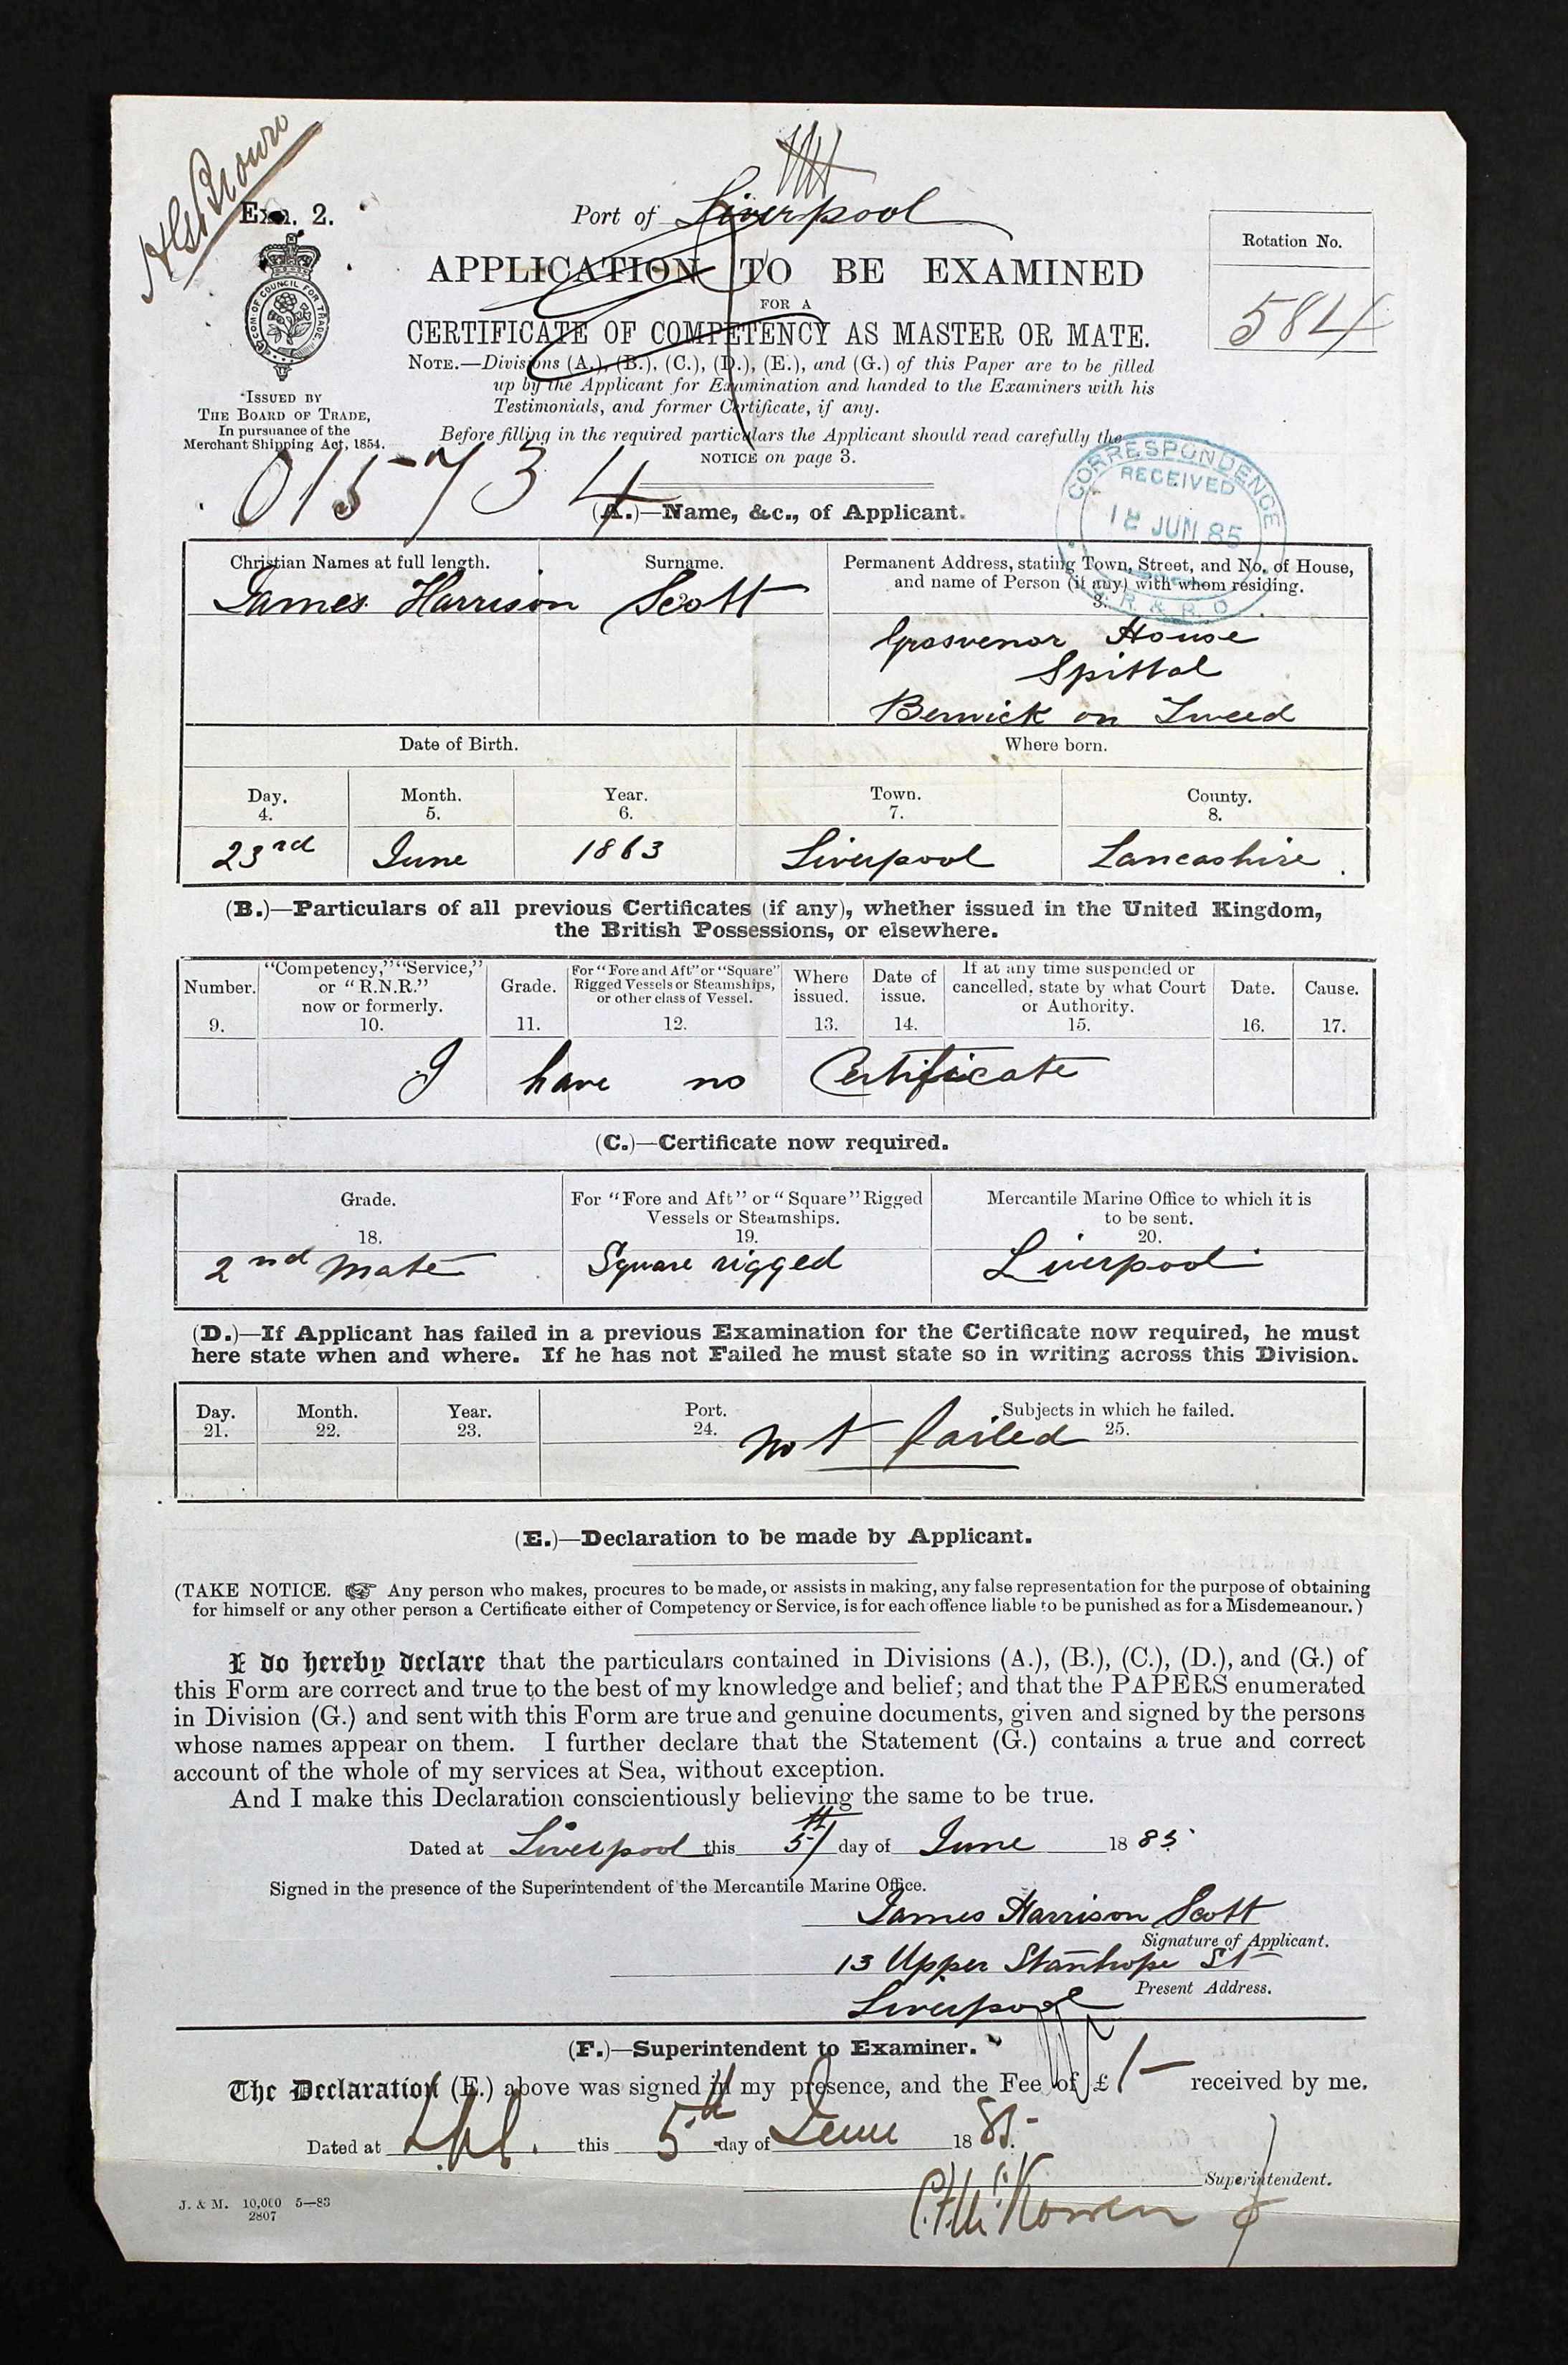 Exn. 2.
Port of Liverpool
Rotation No.
584
APPLICATION TO BE EXAMINED
FOR A
CERTIFICATE OF COMPETENCY AS MASTER OR MATE.
NOTE.—Divisions (A.), (B.), (C.), (D.), (E.), and (G.) of this Paper are to be filled
up by the Applicant for Examination and handed to the Examiners with his
Testimonials, and former Certificate, if any.
Before filling in the required particulars the Applicant should read carefully the
NOTICE on page 3.
COM: OF COUNCIL FOR TRADE
ISSUED BY
THE BOARD OF TRADE,
In pursuance of the
Merchant Shipping Act, 1854.
015734
CORRESPONDENCE
RECEIVED
18 JUN 85
R. & R. O
(A.)—Name, &c., of Applicant.
Christian Names at full length. Surname. Permanent Address, stating Town, Street, and No. of House,
and name of Person (if any) with whom residing.
3.
James Harrison Scott
Grosvenor House
Spittal
Berwick on Tweed
Date of Birth. Where born.
Day. Month. Year. Town. County.
4. 5. 6. 7. 8.
23rd June 1863 Liverpool Lancashire
(B.)—Particulars of all previous Certificates (if any), whether issued in the United Kingdom,
the British Possessions, or elsewhere.
Number. "Competency," "Service," or "R.N.R." now or formerly. Grade. For "Fore and Aft" or "Square" Rigged Vessels or Steamships, or other class of Vessel. Where issued. Date of issue. If at any time suspended or cancelled, state by what Court or Authority. Date. Cause.
9. 10. 11. 12. 13. 14. 15. 16. 17.
I have no Certificate
(C.)—Certificate now required.
Grade. For "Fore and Aft" or "Square" Rigged Vessels or Steamships. Mercantile Marine Office to which it is to be sent.
18. 19. 20.
2nd Mate Square rigged Liverpool
(D.)—If Applicant has failed in a previous Examination for the Certificate now required, he must
here state when and where. If he has not Failed he must state so in writing across this Division.
Day. Month. Year. Port. Subjects in which he failed.
21. 22. 23. 24. 25.
not failed
(E.)—Declaration to be made by Applicant.
(TAKE NOTICE. ☞ Any person who makes, procures to be made, or assists in making, any false representation for the purpose of obtaining
for himself or any other person a Certificate either of Competency or Service, is for each offence liable to be punished as for a Misdemeanour.)
I do hereby declare that the particulars contained in Divisions (A.), (B.), (C.), (D.), and (G.) of
this Form are correct and true to the best of my knowledge and belief; and that the PAPERS enumerated
in Division (G.) and sent with this Form are true and genuine documents, given and signed by the persons
whose names appear on them. I further declare that the Statement (G.) contains a true and correct
account of the whole of my services at Sea, without exception.
And I make this Declaration conscientiously believing the same to be true.
Dated at Liverpool this 5th day of June 1885
Signed in the presence of the Superintendent of the Mercantile Marine Office.
James Harrison Scott
Signature of Applicant.
13 Upper Stanhope St
Present Address.
Liverpool
(F.)—Superintendent to Examiner.
The Declaration (E.) above was signed in my presence, and the Fee of £ 1/- received by me.
Dated at Lpl. this 5th day of June 1885.
Superintendent.
J. & M. 10,000 5—83
2807